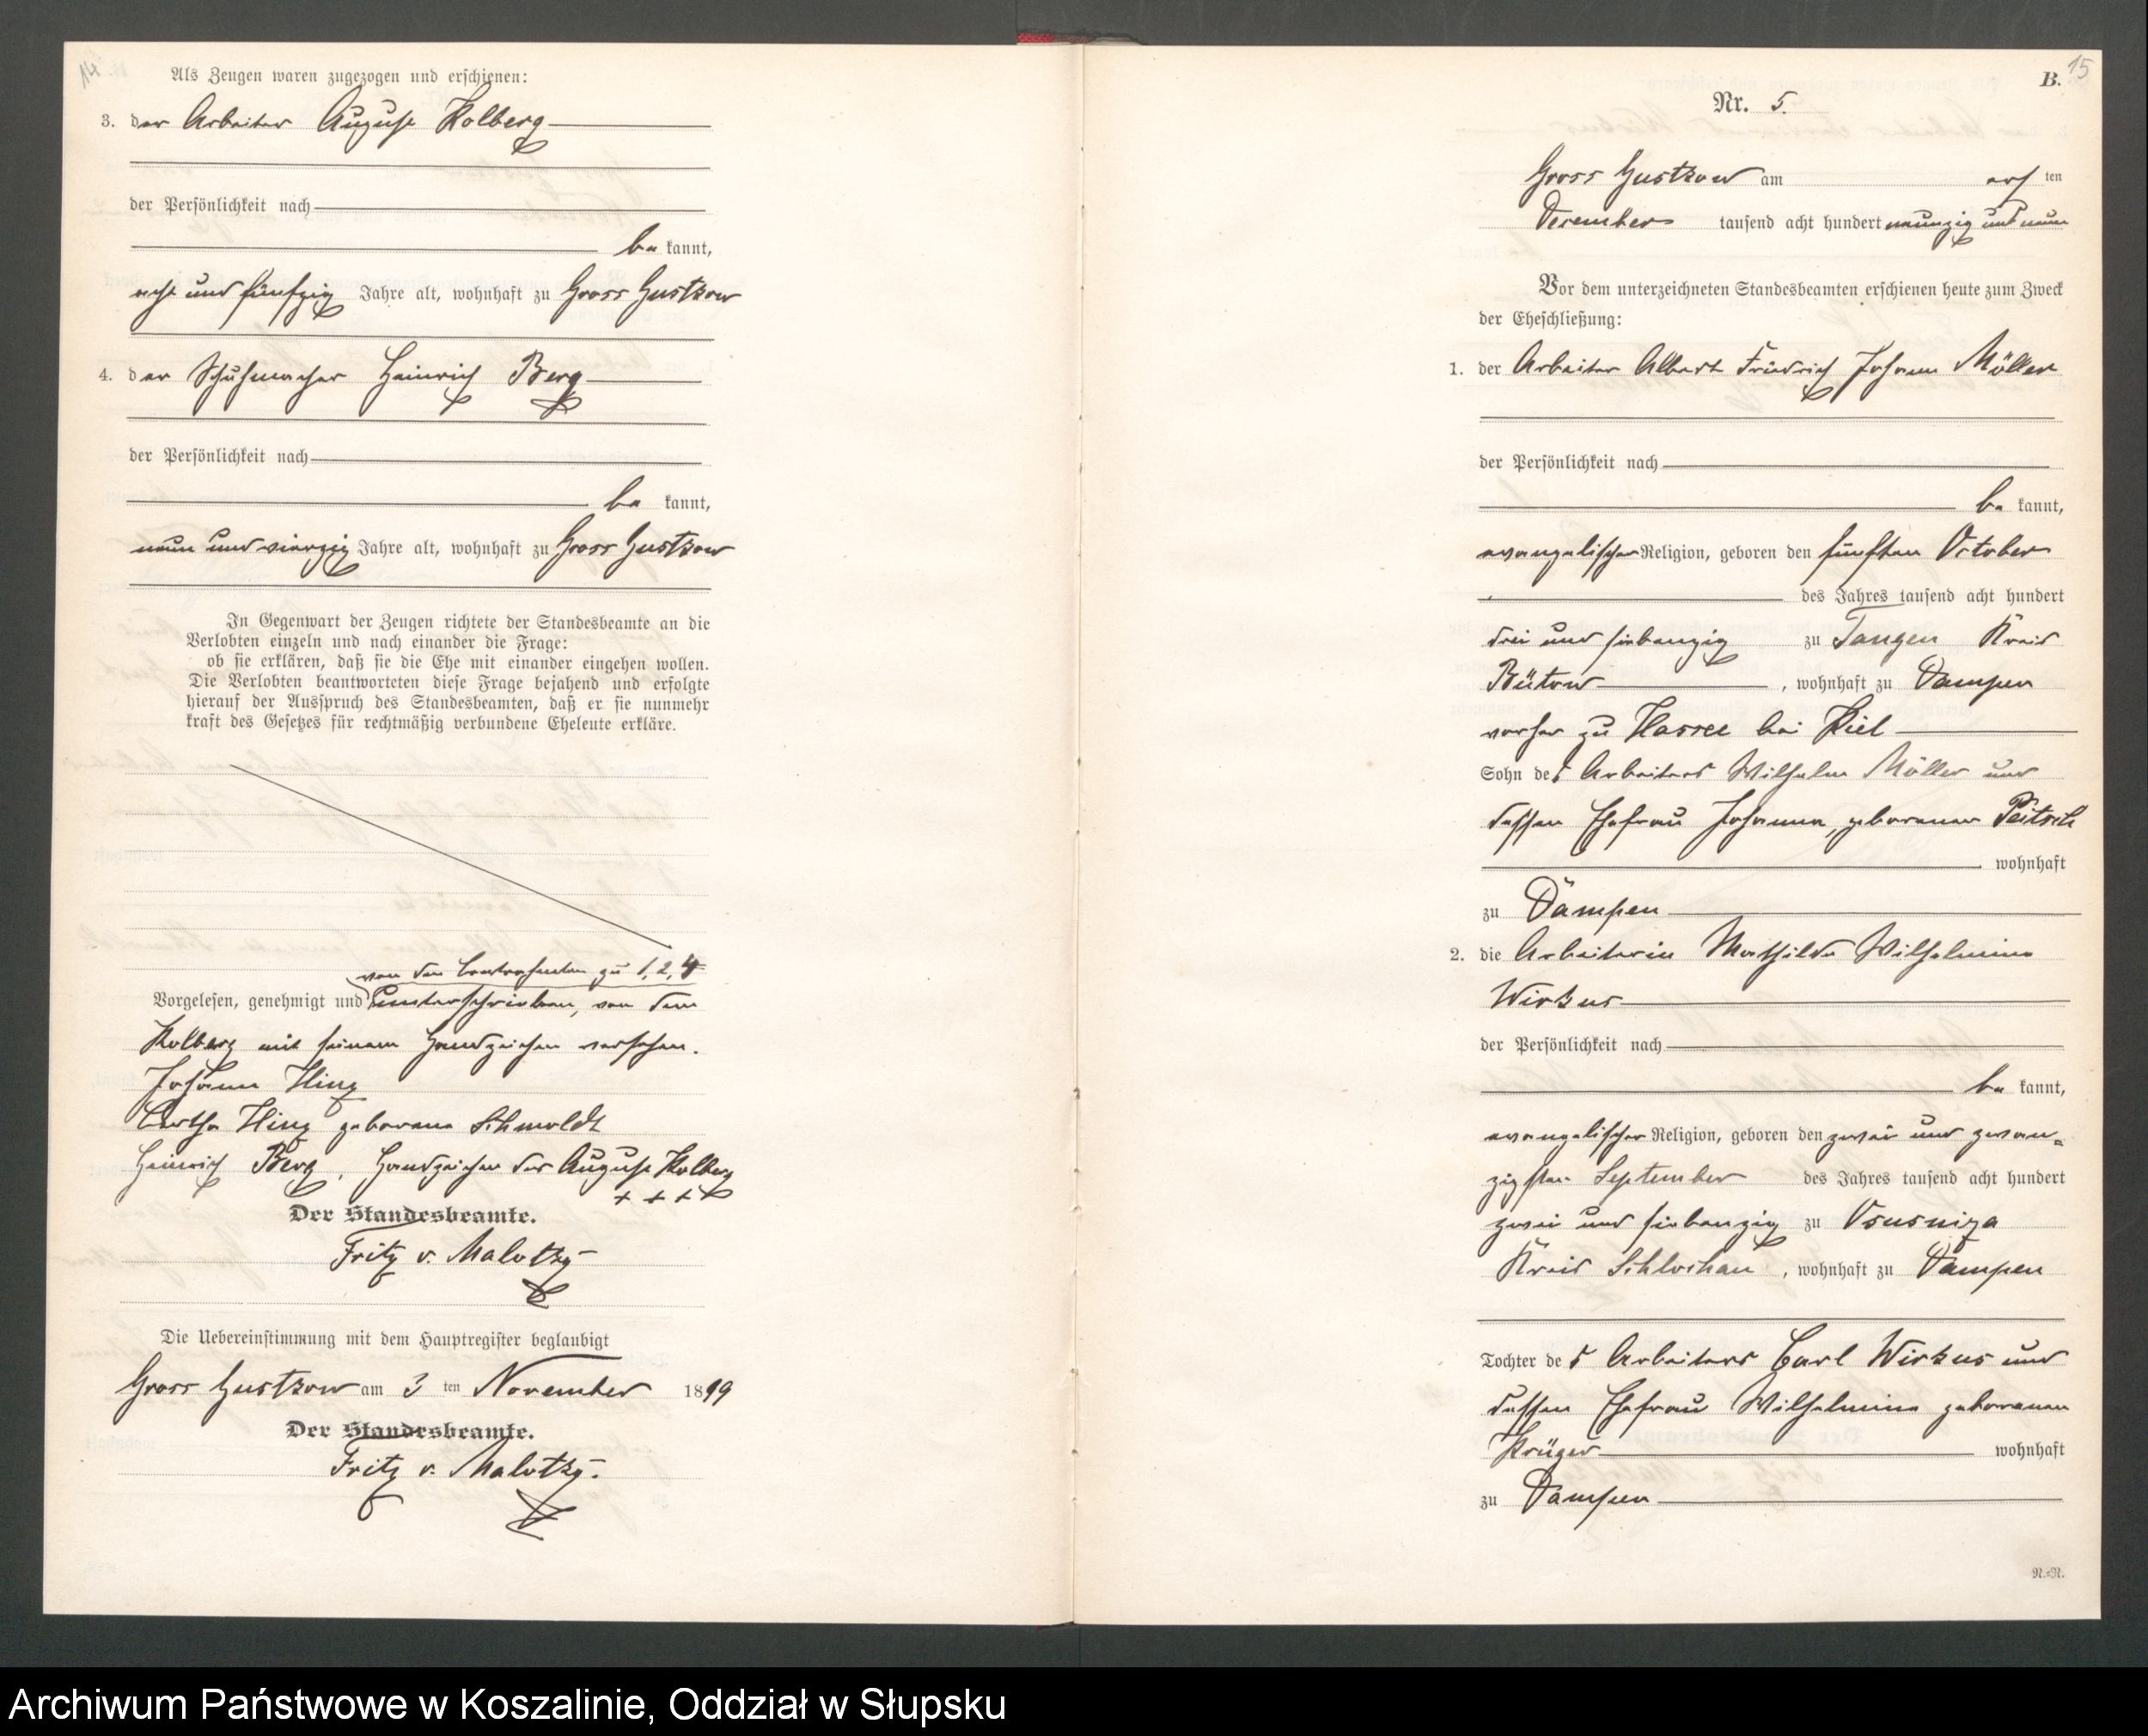 14
Als Zeugen waren zugezogen und erschienen:
3. der Arbeiter August Kolberg
der Persönlichkeit nach
be kannt,
acht und fünfzig Jahre alt, wohnhaft zu Gross Gustkow
4. der Schuhmacher Heinrich Berg
der Persönlichkeit nach
be kannt,
neun und vierzig Jahre alt, wohnhaft zu Gross Gustkow
In Gegenwart der Zeugen richtete der Standesbeamte an die
Verlobten einzeln und nach einander die Frage:
ob sie erklären, daß sie die Ehe mit einander eingehen wollen.
Die Verlobten beantworteten diese Frage bejahend und erfolgte
hierauf der Ausspruch des Standesbeamten, daß er sie nunmehr
kraft des Gesetzes für rechtmäßig verbundene Eheleute erkläre.
von den Contrahenten zu 1, 2, 4
Vorgelesen, genehmigt und unterschrieben, von dem
Kolberg mit seinem Handzeichen versehen.
Johann Hinz
Bertha Hinz geborene Schmoldt
Heinrich Berg, Handzeichen des August Kolberg
+ + +
Der Standesbeamte.
Fritz v. Malotky
Die Uebereinstimmung mit dem Hauptregister beglaubigt
Gross Gustkow am 3 ten November 1899
Der Standesbeamte.
Fritz v. Malotky.
B. 15
Nr. 5.
Gross Gustkow am elf ten
December tausend acht hundert neunzig und neun
Vor dem unterzeichneten Standesbeamten erschienen heute zum Zweck
der Eheschließung:
1. der Arbeiter Albert Friedrich Johann Möller
der Persönlichkeit nach
be kannt,
evangelischer Religion, geboren den fünften October
des Jahres tausend acht hundert
drei und siebenzig zu Tangen Kreis
Bütow, wohnhaft zu Dampen
vorher zu Hassee bei Kiel
Sohn des Arbeiters Wilhelm Möller und
dessen Ehefrau Johanna, geborener Peitsch
wohnhaft
zu Dampen
2. die Arbeiterin Mathilde Wilhelmine
Wirkus
der Persönlichkeit nach
be kannt,
evangelischer Religion, geboren den zwei und zwan-
zigsten September des Jahres tausend acht hundert
zwei und siebenzig zu Ossusniza
Kreis Schlochau, wohnhaft zu Dampen
Tochter des Arbeiters Carl Wirkus und
dessen Ehefrau Wilhelmine geborenen
Krüger wohnhaft
zu Dampen
N.=N.
Archiwum Państwowe w Koszalinie, Oddział w Słupsku